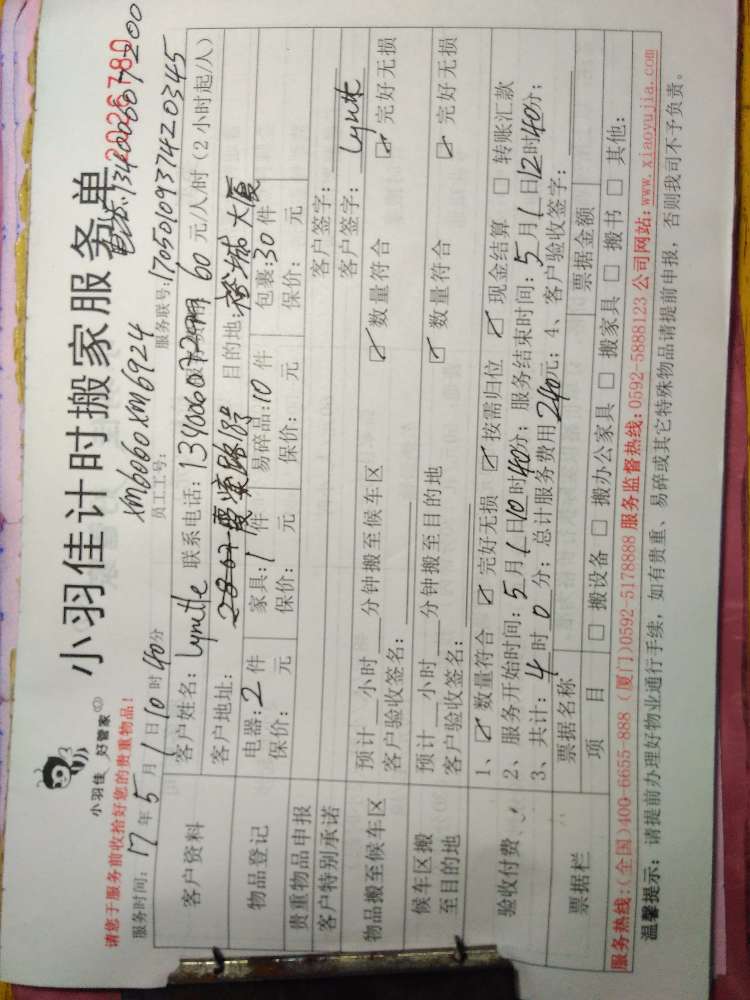 小羽佳 好管家
小羽佳计时搬家服务单
2026780
请您于服务前收拾好您的贵重物品!
xm6060 xm6924
服务时间: 17 年 5 月 1 日 10 时 40 分 员工工号: 服务联号: 1705010937420345
客户资料
客户姓名: Lynette 联系电话: 60 元/人/时 (2 小时起/人)
客户地址: 目的地: 裕城大厦
物品登记
电器: 2 件 家具: 1 件 易碎品: 10 件 包裹: 30 件
保价: 元 保价: 元 保价: 元 保价: 元
贵重物品申报
客户特别承诺 客户签字:
物品搬至候车区
客户签字: Lynette
预计 小时 分钟搬至候车区 ☑ 数量符合 ☑ 完好无损
客户验收签名:
候车区搬至目的地
预计 小时 分钟搬至目的地 ☑ 数量符合 ☑ 完好无损
客户验收签名:
验收付费
1、☑ 数量符合 ☑ 完好无损 ☑ 按需归位 ☑ 现金结算 □ 转账汇款
2、服务开始时间: 5 月 1 日 10 时 40 分; 服务结束时间: 5 月 1 日 12 时 40 分;
3、共计: 4 时 0 分; 总计服务费用 240 元; 4、客户验收签字:
票据栏
票据名称 票据金额
项 目 □ 搬设备 □ 搬办公家具 □ 搬家具 □ 搬书 □ 其他:
服务热线:(全国)400-6655-888 (厦门)0592-5178888 服务监督热线: 0592-5888123 公司网站: www.xiaoyujia.com
温馨提示: 请提前办理好物业通行手续, 如有贵重、易碎或其它特殊物品请提前申报, 否则我司不予负责。